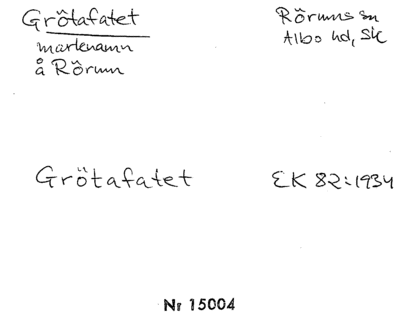 Grötafatet
Rörums sn
Albo hd, Sk
markenamn
å Rörum
Grötafatet
EK 82:1934
Nr 15004